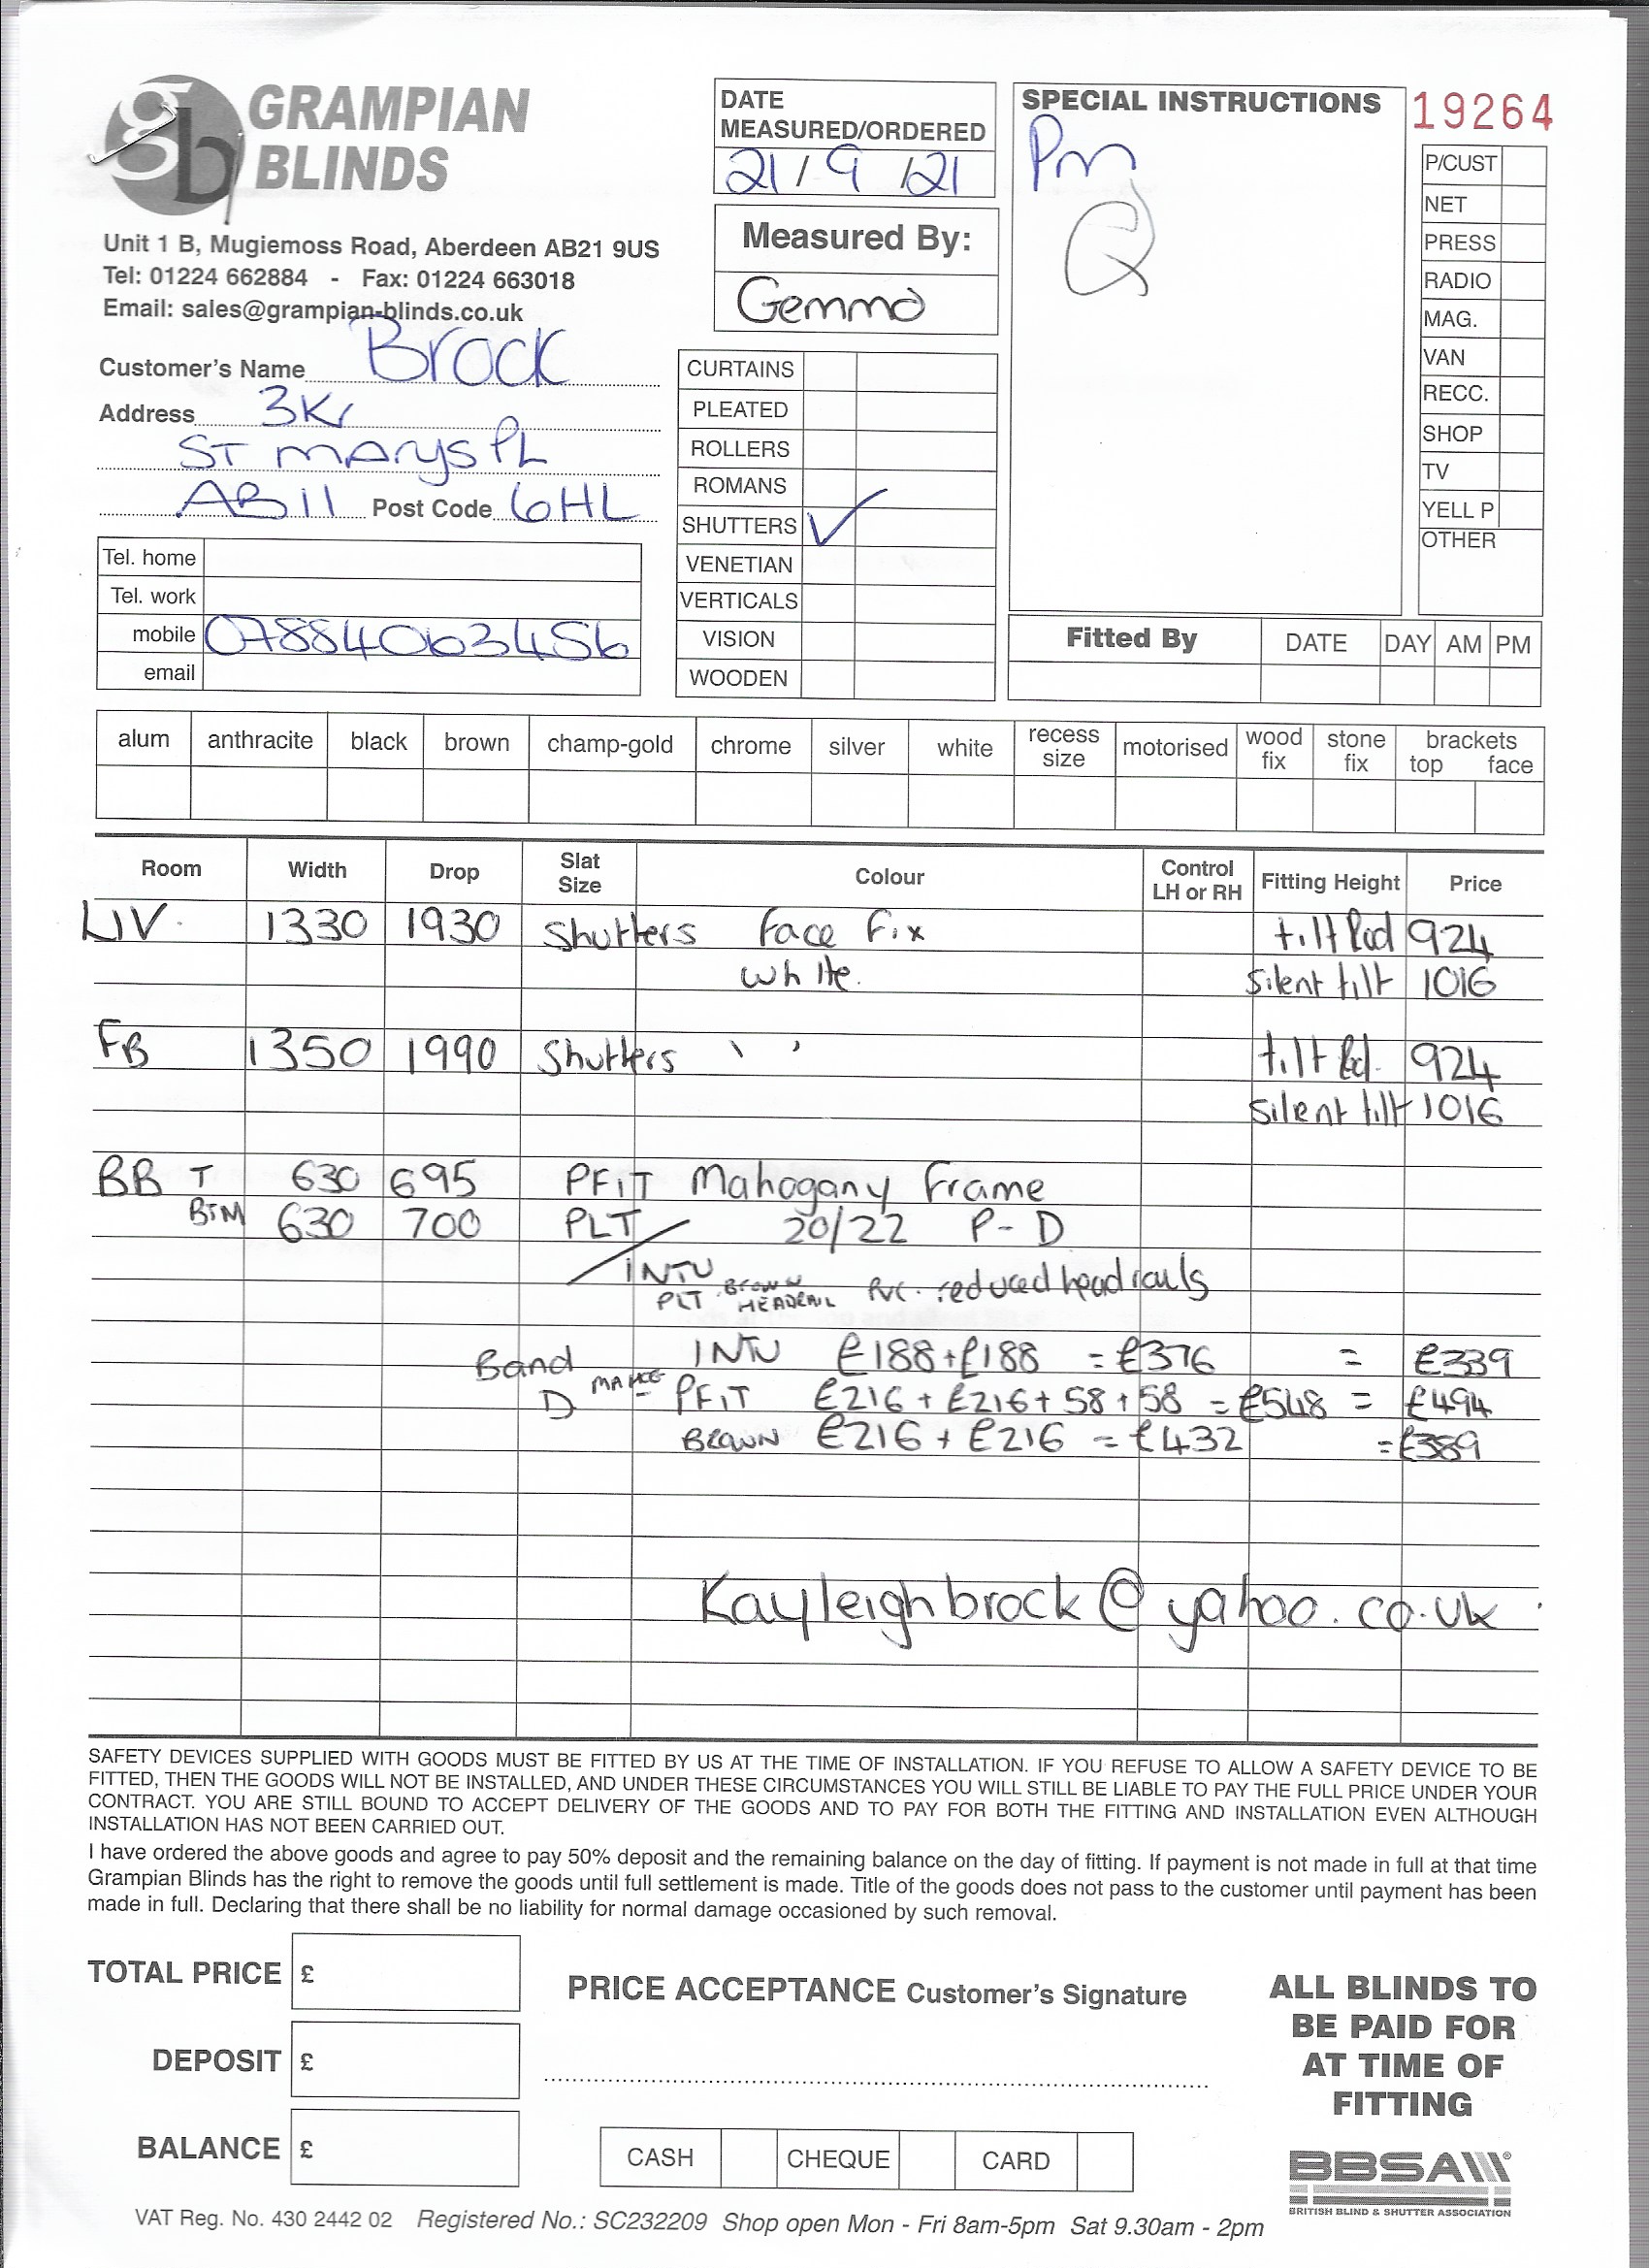 gb GRAMPIAN BLINDS
Unit 1 B, Mugiemoss Road, Aberdeen AB21 9US
Tel: 01224 662884 - Fax: 01224 663018
Email: sales@grampian-blinds.co.uk
Customer's Name Brock
Address 3Kr
ST MARYS PL
AB11 Post Code 6HL
Tel. home
Tel. work
mobile 07884063456
email
DATE
MEASURED/ORDERED
21/9/21
Measured By:
Gemma
CURTAINS
PLEATED
ROLLERS
ROMANS
SHUTTERS ✓
VENETIAN
VERTICALS
VISION
WOODEN
SPECIAL INSTRUCTIONS
Pm
Q
19264
P/CUST
NET
PRESS
RADIO
MAG.
VAN
RECC.
SHOP
TV
YELL P
OTHER
Fitted By DATE DAY AM PM
alum anthracite black brown champ-gold chrome silver white recess size motorised wood fix stone fix brackets top face
Room Width Drop Slat Size Colour Control LH or RH Fitting Height Price
LIV. 1330 1930 Shutters face fix tilt Rod 924
white. silent tilt 1016
FB 1350 1990 Shutters ' ' tilt Rd. 924
silent tilt 1016
BB T 630 695 PFIT Mahogany Frame
BTM 630 700 PLT 20/22 P-D
/INTU
PLT BROWN HEADRAIL PVC. reduced headrails
Band INTU £188+£188 =£376 = £339
D PFIT £216 + £216 + 58 + 58 = £548 = £494
BROWN £216 + £216 = £432 = £389
Kayleighbrock@yahoo.co.uk
SAFETY DEVICES SUPPLIED WITH GOODS MUST BE FITTED BY US AT THE TIME OF INSTALLATION. IF YOU REFUSE TO ALLOW A SAFETY DEVICE TO BE
FITTED, THEN THE GOODS WILL NOT BE INSTALLED, AND UNDER THESE CIRCUMSTANCES YOU WILL STILL BE LIABLE TO PAY THE FULL PRICE UNDER YOUR
CONTRACT. YOU ARE STILL BOUND TO ACCEPT DELIVERY OF THE GOODS AND TO PAY FOR BOTH THE FITTING AND INSTALLATION EVEN ALTHOUGH
INSTALLATION HAS NOT BEEN CARRIED OUT.
I have ordered the above goods and agree to pay 50% deposit and the remaining balance on the day of fitting. If payment is not made in full at that time
Grampian Blinds has the right to remove the goods until full settlement is made. Title of the goods does not pass to the customer until payment has been
made in full. Declaring that there shall be no liability for normal damage occasioned by such removal.
TOTAL PRICE £
DEPOSIT £
BALANCE £
PRICE ACCEPTANCE Customer's Signature
CASH CHEQUE CARD
ALL BLINDS TO
BE PAID FOR
AT TIME OF
FITTING
BBSA
BRITISH BLIND & SHUTTER ASSOCIATION
VAT Reg. No. 430 2442 02 Registered No.: SC232209 Shop open Mon - Fri 8am-5pm Sat 9.30am - 2pm